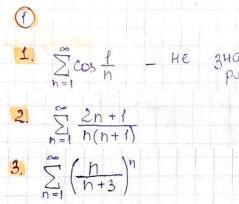 1
1. ∞∑n=1 cos 1/n - не
2. ∞∑n=1 (2n+1)/(n(n+1))
3. ∞∑n=1 (n/(n+3))^n